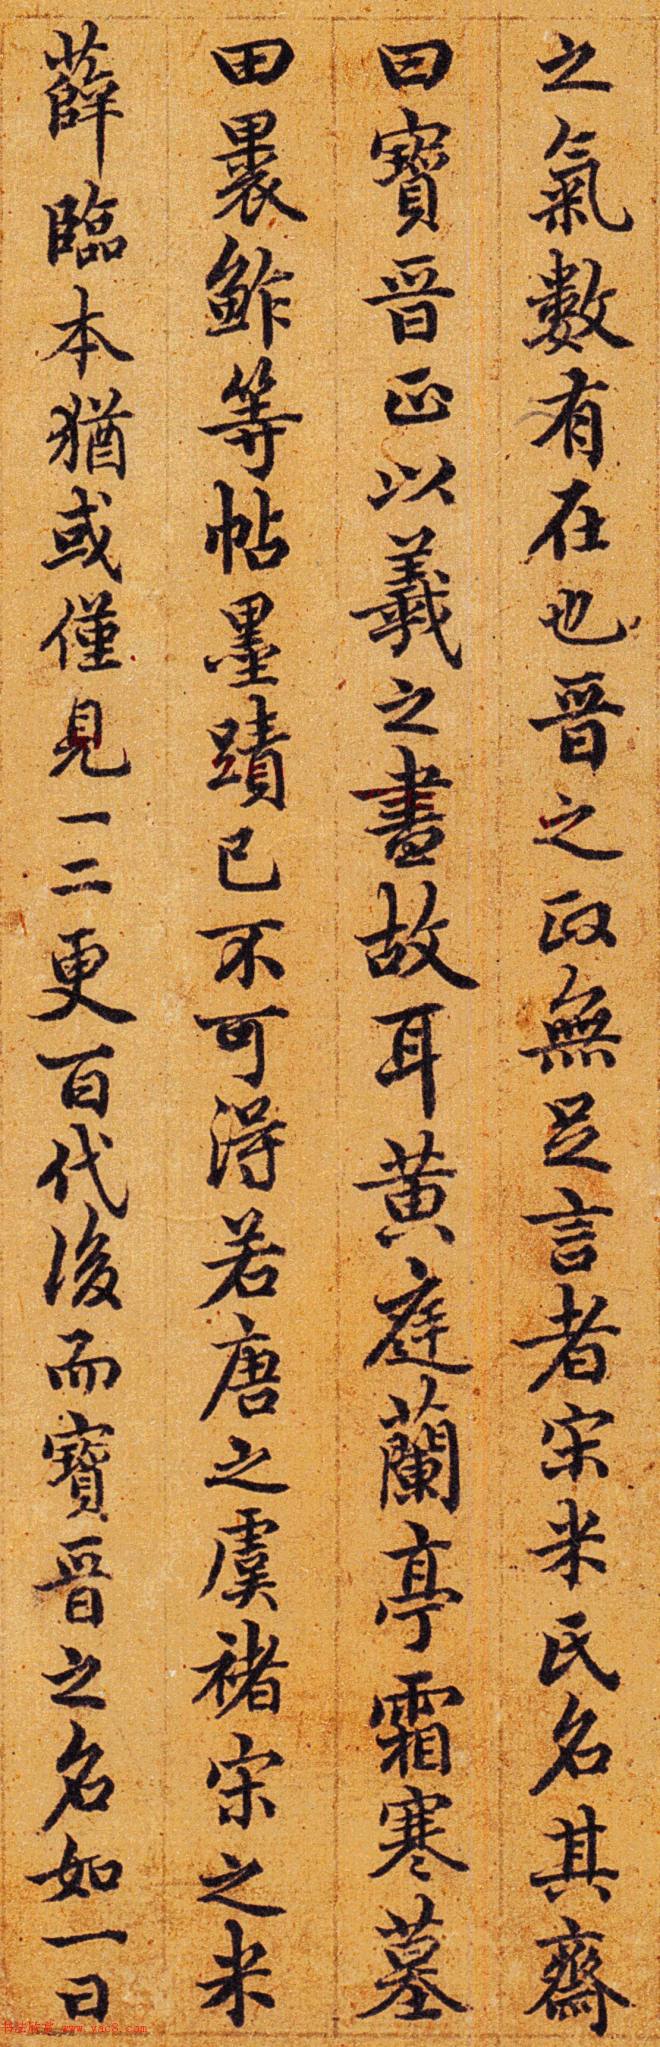 之氣數有在也晉之政無足言者宋米氏名其齋
曰寶晉正以羲之書故耳黃庭蘭亭霜寒墓
田裹鮓等帖墨蹟已不可得若唐之虞褚宋之米
薛臨本猶或僅見一二更百代後而寶晉之名如一日
书法欣赏 www.yac8.com